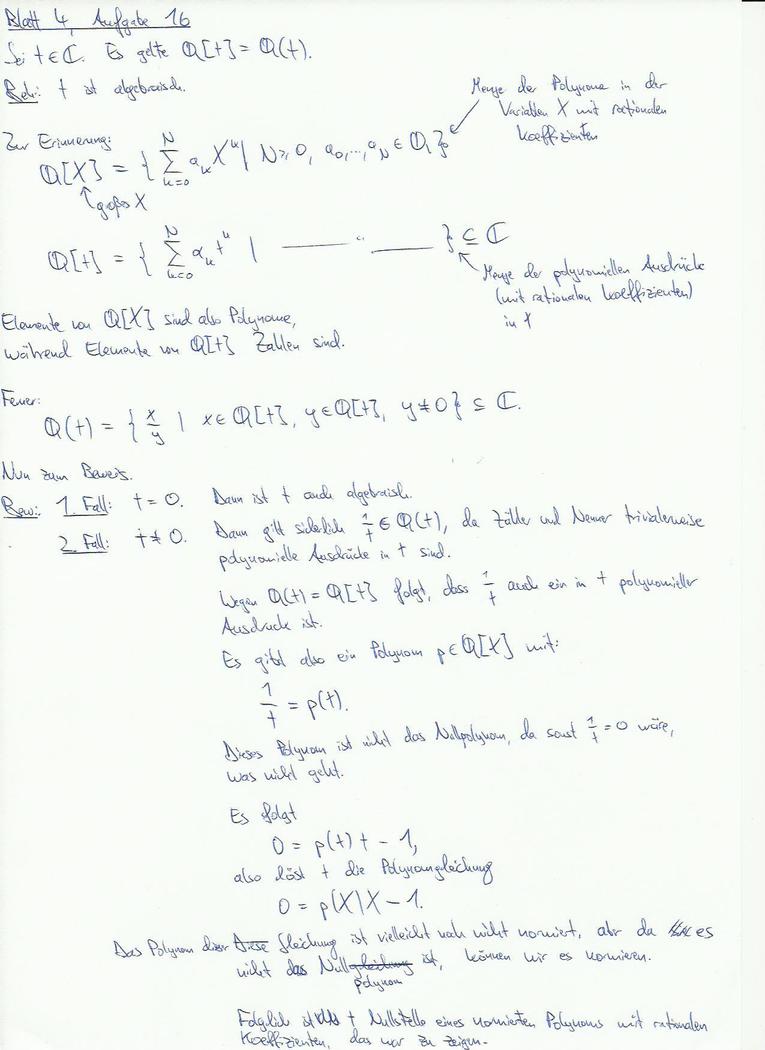 Blatt 4, Aufgabe 16
Sei t ∈ ℂ. Es gelte ℚ[t] = ℚ(t).
Beh: t ist algebraisch.
Menge der Polynome in der
Variablen X mit rationalen
Koeffizienten
Zur Erinnerung:
ℚ[X] = { ∑_{k=0}^{N} a_k X^k | N ≥ 0, a_0, ..., a_N ∈ ℚ }
großes X
ℚ[t] = { ∑_{k=0}^{N} a_k t^k | —— " —— } ⊆ ℂ
Menge der polynomiellen Ausdrücke
(mit rationalen Koeffizienten)
in t
Elemente von ℚ[X] sind also Polynome,
während Elemente von ℚ[t] Zahlen sind.
Ferner:
ℚ(t) = { x/y | x ∈ ℚ[t], y ∈ ℚ[t], y ≠ 0 } ⊆ ℂ.
Nun zum Beweis.
Bew: 1. Fall: t = 0. Dann ist t auch algebraisch.
2. Fall: t ≠ 0. Dann gilt sicherlich 1/t ∈ ℚ(t), da Zähler und Nenner trivialerweise
polynomielle Ausdrücke in t sind.
Wegen ℚ(t) = ℚ[t] folgt, dass 1/t auch ein in t polynomieller
Ausdruck ist.
Es gibt also ein Polynom p ∈ ℚ[X] mit:
1/t = p(t).
Dieses Polynom ist nicht das Nullpolynom, da sonst 1/t = 0 wäre,
was nicht geht.
Es folgt
0 = p(t) t − 1,
also löst t die Polynomgleichung
0 = p(X) X − 1.
Das Polynom dieser Diese Gleichung ist vielleicht noch nicht normiert, aber da es
nicht das Nullgleichung polynom ist, können wir es normieren.
Folglich ist t Nullstelle eines normierten Polynoms mit rationalen
Koeffizienten, das war zu zeigen.